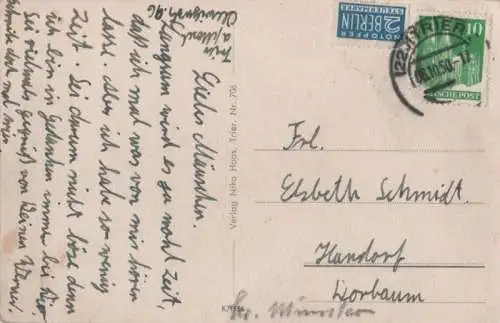 Trier
Liebes Mäuschen.
Langsam wird es ja wohl Zeit,
daß ich mal was von mir hören
lasse. Aber ich habe so wenig
Zeit. Sei darum nicht böse denn
ich bin in Gedanken immer bei Dir
Sei vielmals gegrüßt von Deinen Werner
Schreib doch mal
Verlag Nita Haas, Trier, Nr. 706
NOTOPFER
2 BERLIN
STEUERMARKE
10
DEUTSCHE POST
(22) TRIER
08.10.50
Frl.
Elsbeth Schmidt
Handorf
Dorbaum
Münster